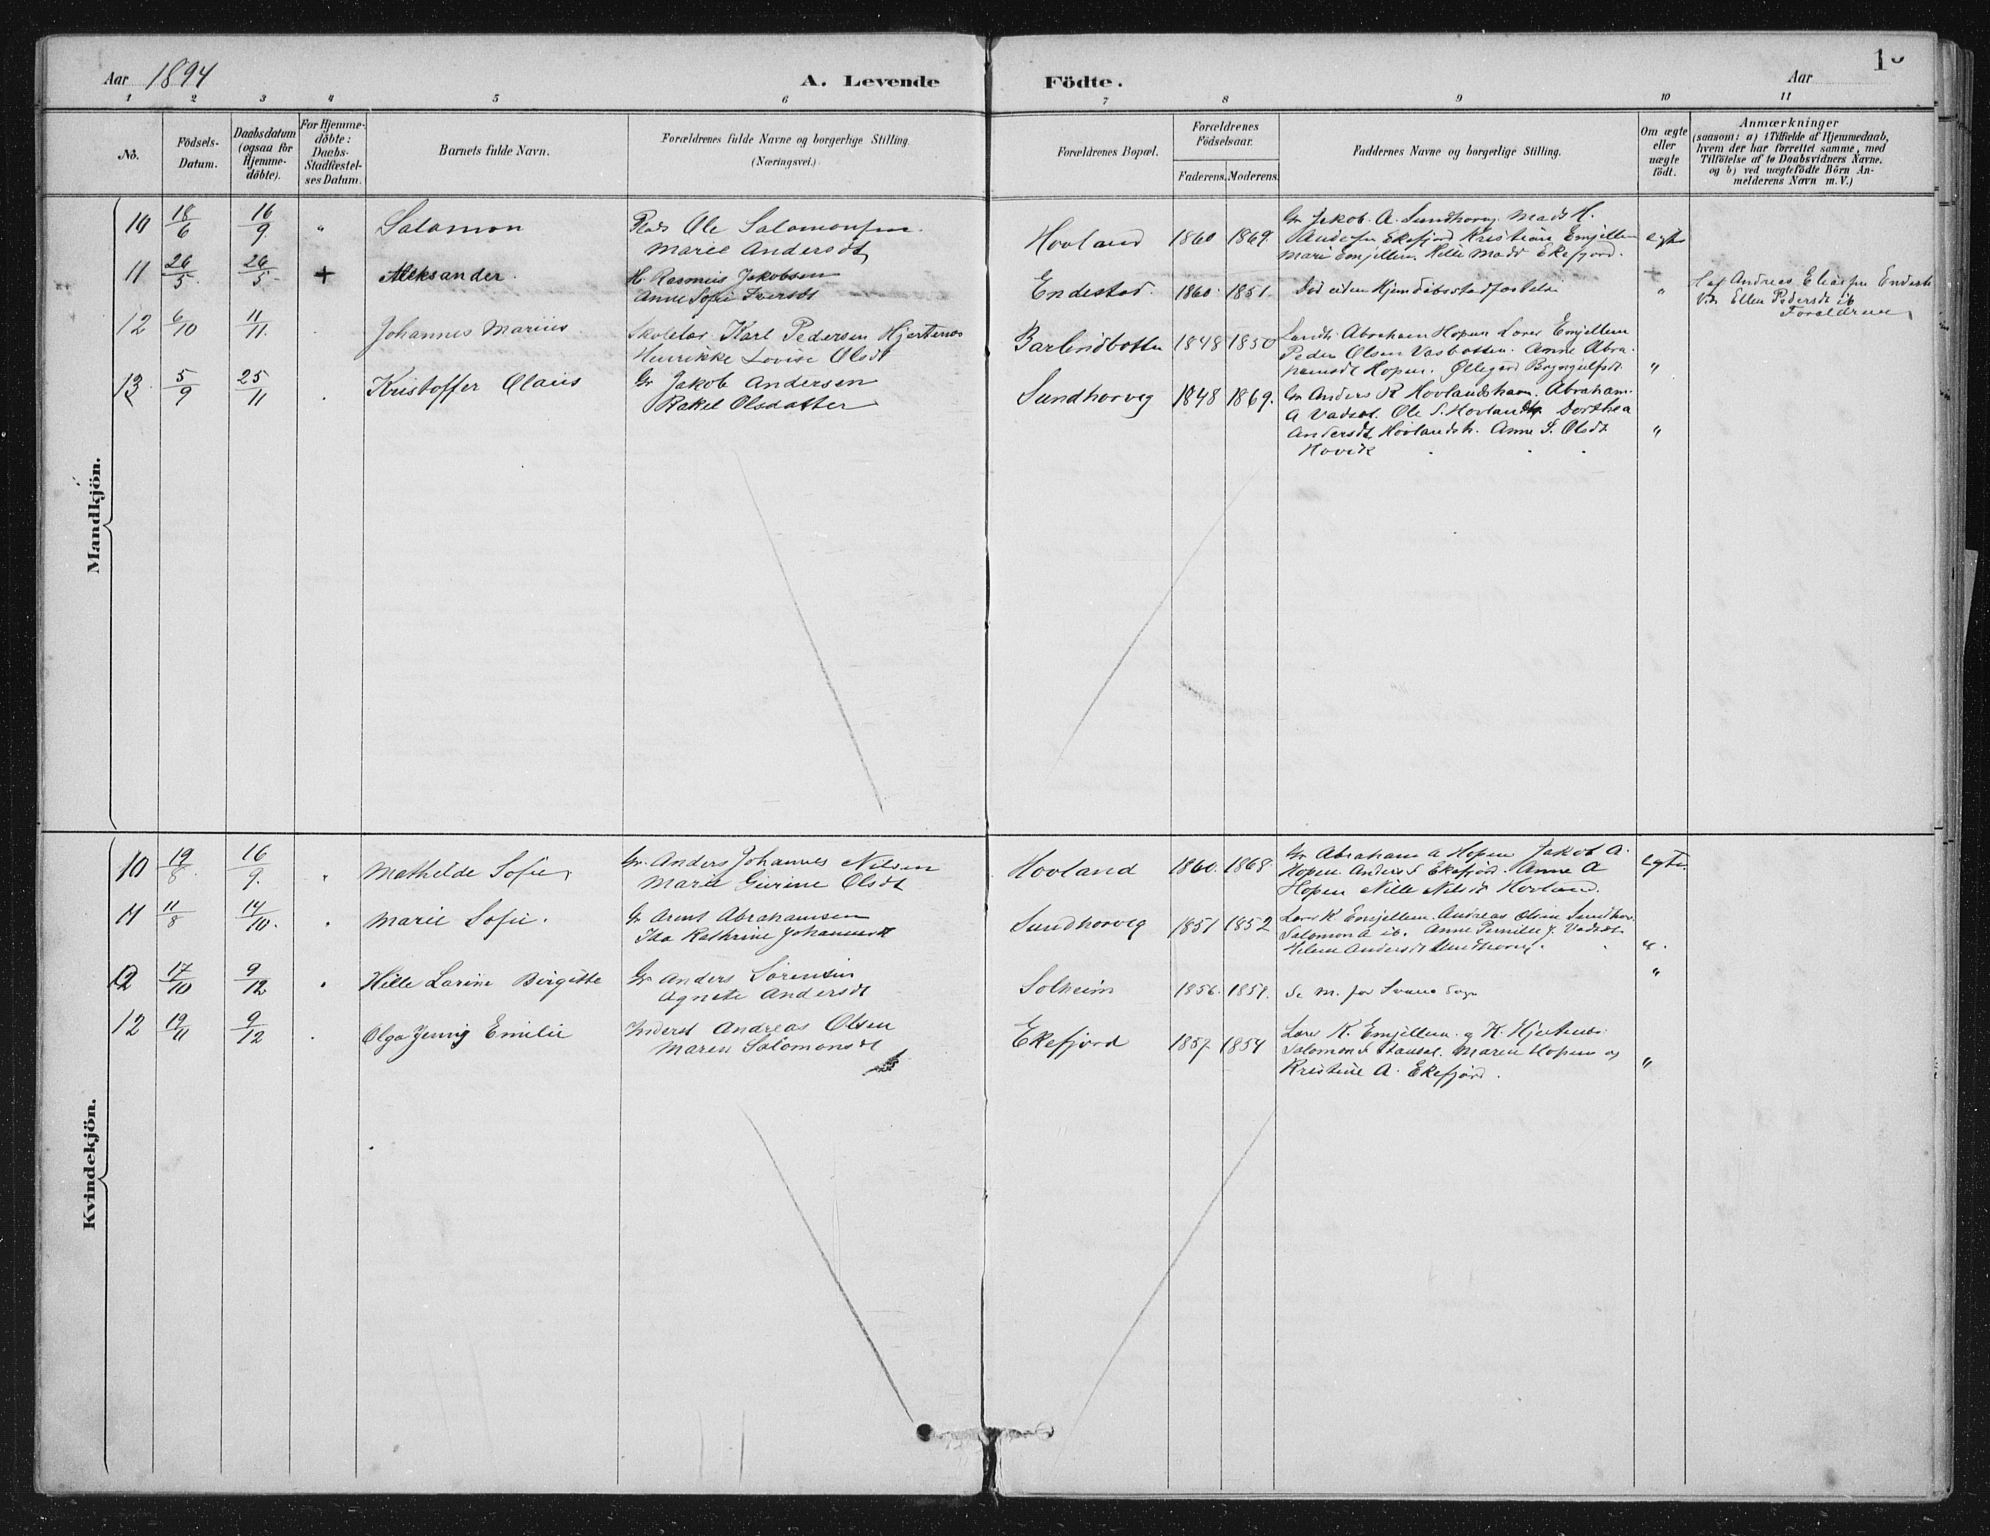 Aar 1894
A. Levende Födte.
Aar
1 2 3 4 5 6 7 8 9 10 11
No.
Födsels-Datum.
Daabsdatum (ogsaa for Hjemme-döbte).
For Hjemme-döbte: Daabs-Stadfæstel-ses Datum.
Barnets fulde Navn.
Forældrenes fulde Navne og borgerlige Stilling.
(Næringsvei.)
Forældrenes Bopæl.
Forældrenes Födselsaar.
Faderens. Moderens.
Faddernes Navne og borgerlige Stilling.
Om ægte eller uægte födt.
Anmærkninger
(saasom: a) i Tilfælde af Hjemmedaab,
hvem der har forrettet samme, med
Tilföielse af to Daabsvidners Navne.
og b) ved uægtefödte Börn An-
melderens Navn m. V.)
Mandkjön.
10 18/6 16/9 " Salomon
Ole Salomonsen
Marie Andersdt
Hovland 1860 1869.
Gr. Jakob A. Sundhorvg. Mads H.
Andersen Ekefjord Kristian Emjellem
Marie Emjellem, Hille Madsd Ekefjord.
egte
11 26/5 26/5 + Aleksander.
H. Rasmus Jakobsen
Anne Sofie Iversdt
Endestad. 1860. 1851.
"
af Andreas Eliassen Endest
Ellen Pedersdt ib
Forældrene
12 6/10 11/11. Johannes Marius
Skolelær Karl Pedersen Hjertenes
Henrikke Lovise Olsdt
Barlindbotten 1848 1850
Landh. Abraham Hopen Lærer Emjellem
Peder Olsen Vasbotten. Anne Abra-
hamsdt Hopen.
"
13. 5/9 25/11 Kristoffer Olaus
Gr Jakob Andersen
Rakel Olsdatter
Sundhorveg 1848 1869.
Gr Anders R Hovlandshavn. Abraham
A Vadset. Ole S. Hovland. Dorthea
Andersdt Hovlandsh. Anne S. Olsdt
Hovik
"
Kvindekjön.
10 19/8 16/9. " Mathilde Sofie
Gr. Anders Johannes Nilsen
Marie Gurine Olsdt
Hovland 1860. 1868
Gr Abraham A Hopen Jakob A.
Hopen Anders S Ekefjord. Anne A
Hopen Nille Nilsdt Hovland.
egte
11 11/8 14/10. " Marie Sofie.
Gr Arent Abrahamsen
Ida Kathrine Johannesdt
Sundhorveg 1851 1852
Lærer K. Emjellem. Andreas Olsen Sundhor.
Salomon A ib. Anne Pernille J. Vadset
Helene Andersdt Sundhorveg.
"
12 17/10 9/12 " Hille Larine Birgitte
Gr Anders Sörensen
Agnete Andersdt
Solheim 1856. 1859.
Se M. for Svanø Sogn
"
12 19/11 9/12 Olga Jenny Emilie
Inderst Andreas Olsen
Maren Salomonsdt
Ekefjord 1857 1854
Lærer K. Emjellem. og K. Hjertenes.
Salomon S Stauset. Maren Hopen og
Kristine A. Ekefjord.
"